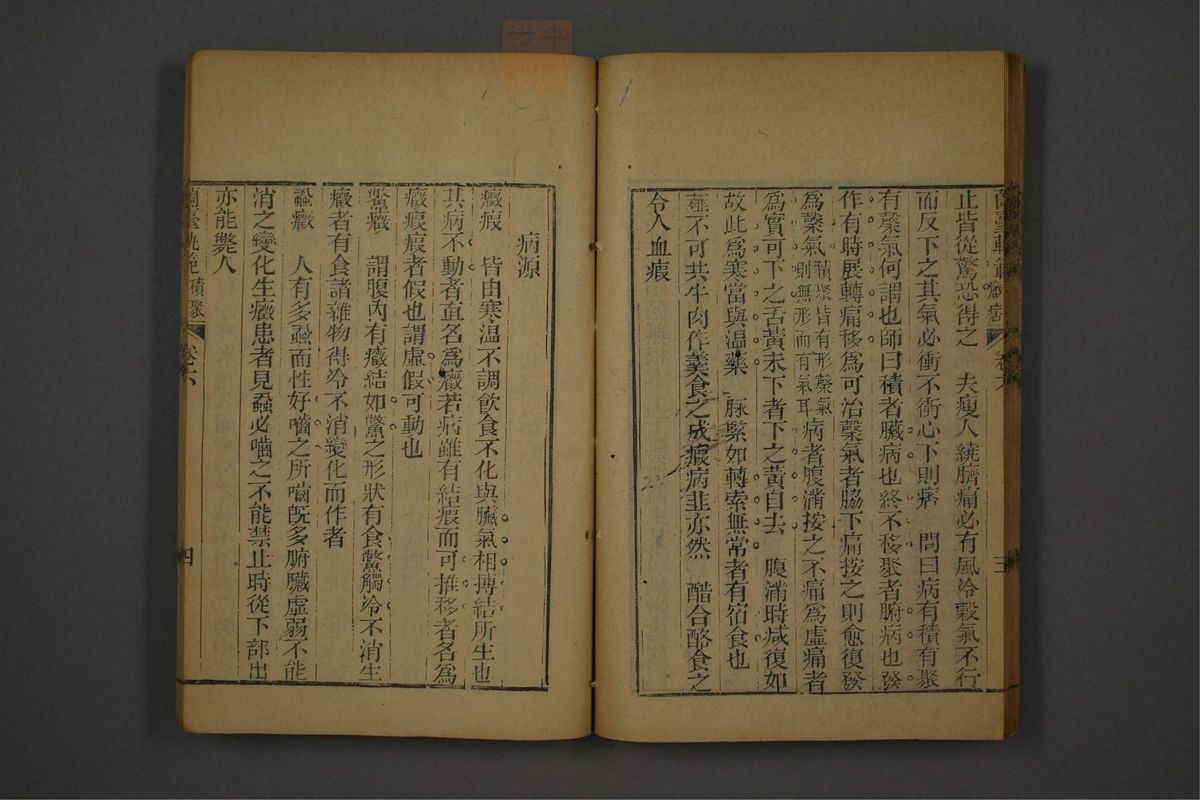 止皆從驚恐得之　夫瘦人繞臍痛必有風冷穀氣不行
而反下之其氣必衝不衝心下則痞　問曰病有積有聚
有䅽氣何謂也師曰積者臟病也終不移聚者腑病也發
作有時展轉痛移爲可治䅽氣者脇下痛按之則愈復發
爲䅽氣積聚皆有形䅽氣則無形而有氣耳病者腹滿按之不痛爲虛痛者
爲實可下之舌黃未下者下之黃自去　腹滿時減復如
故此爲寒當與温藥　脉緊如轉索無常者有宿食也
薤不可共牛肉作羹食之成瘕病韭亦然　醋合酪食之
令人血瘕
蘭臺軌範
卷六
三
病源
癥瘕　皆由寒温不調飲食不化與臟氣相摶結所生也
其病不動者直名爲癥若病雖有結瘕而可推移者名爲
癥瘕瘕者假也謂虛假可動也
鱉癥　謂腹內有癥結如鱉之形狀有食鱉觸冷不消生
癥者有食諸雜物得冷不消變化而作者
蝨癥　人有多蝨而性好嚙之所嚙旣多腑臟虛弱不能
消之變化生癥患者見蝨必嚙之不能禁止時從下部出
亦能斃人
蘭臺軌範 積聚
卷六
四